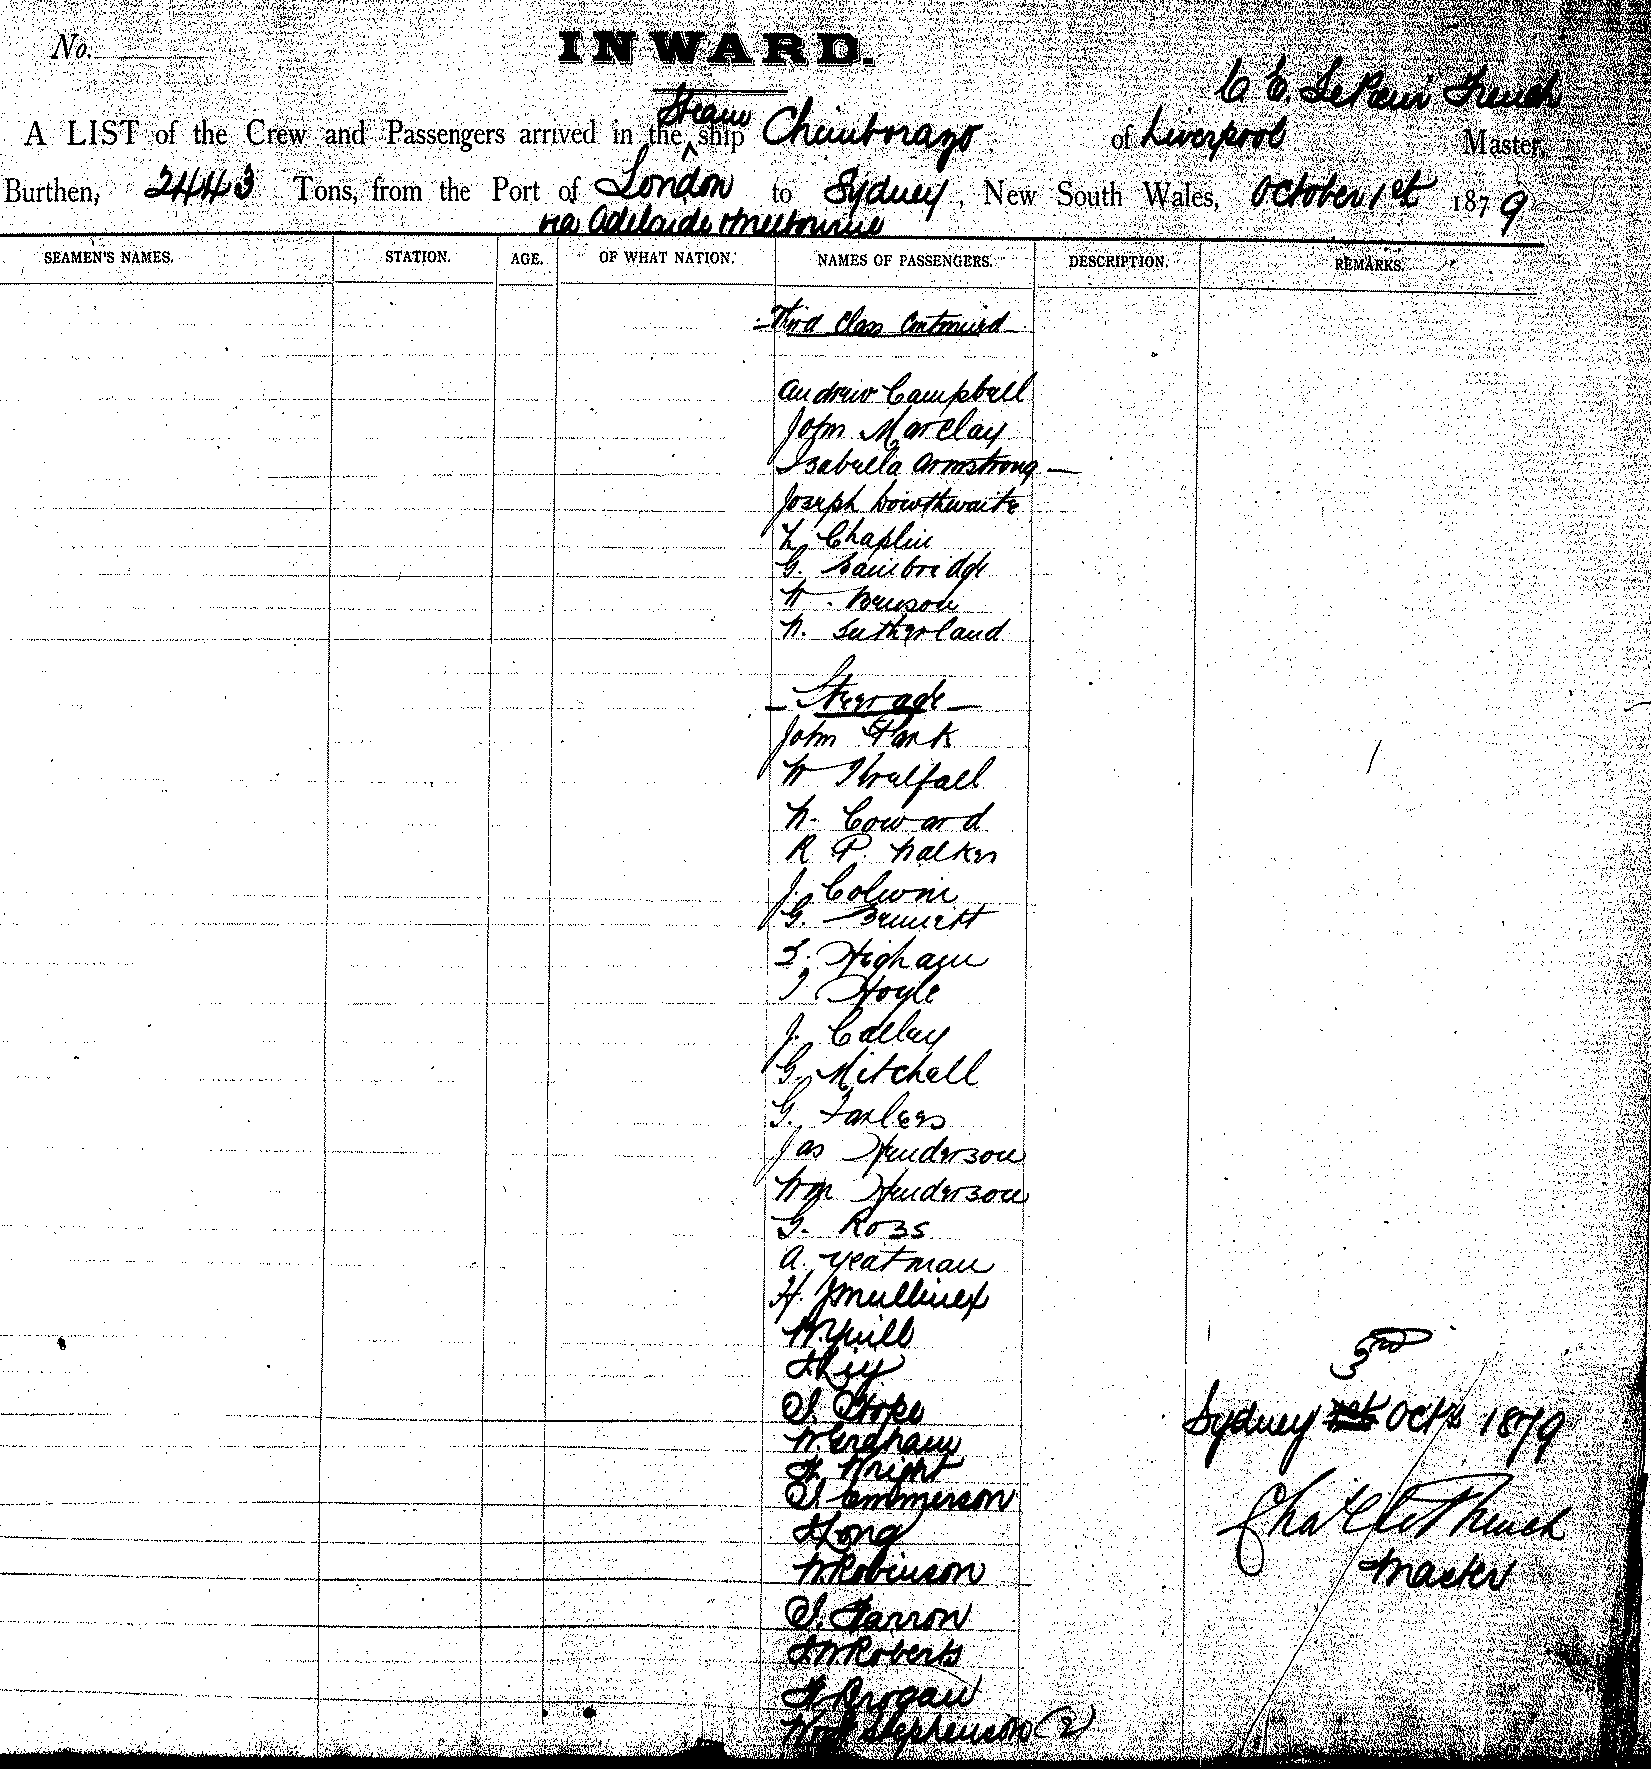 No.
INWARD.
C E. LePoer French
Steam
A LIST of the Crew and Passengers arrived in the ^ ship Chimborazo of Liverpool Master,
Burthen, 2443 Tons, from the Port of London to Sydney, New South Wales, October 1st 1879
via Adelaide & Melbourne
SEAMEN'S NAMES. STATION. AGE. OF WHAT NATION. NAMES OF PASSENGERS. DESCRIPTION. REMARKS.
Third Class Continued
Andrew Campbell
John Marclay
Isabella Armstrong
Joseph Dowthwaite
L. Chaplin
G. Bainbridge
W. Benson
W. Sutherland
Steerage
John Park
W Threlfall
W. Coward
R P. Walker
J. Colwin
G. Bennett
S. Higham
T. Hoyle
J. Calley
G. Mitchell
G. Farlees
Jas Henderson
Wm Henderson
G. Ross
A. Yeatman
H. Mullinex
W. Yuill
3rd
S. Hope
Sydney 1st Octr 1879
W. Graham
H. Wright
S. Emmerson
Long
Chas E LeP French
W. Robinson
Master
S. Farron
W Roberts
Brogan
Stephenson (2)